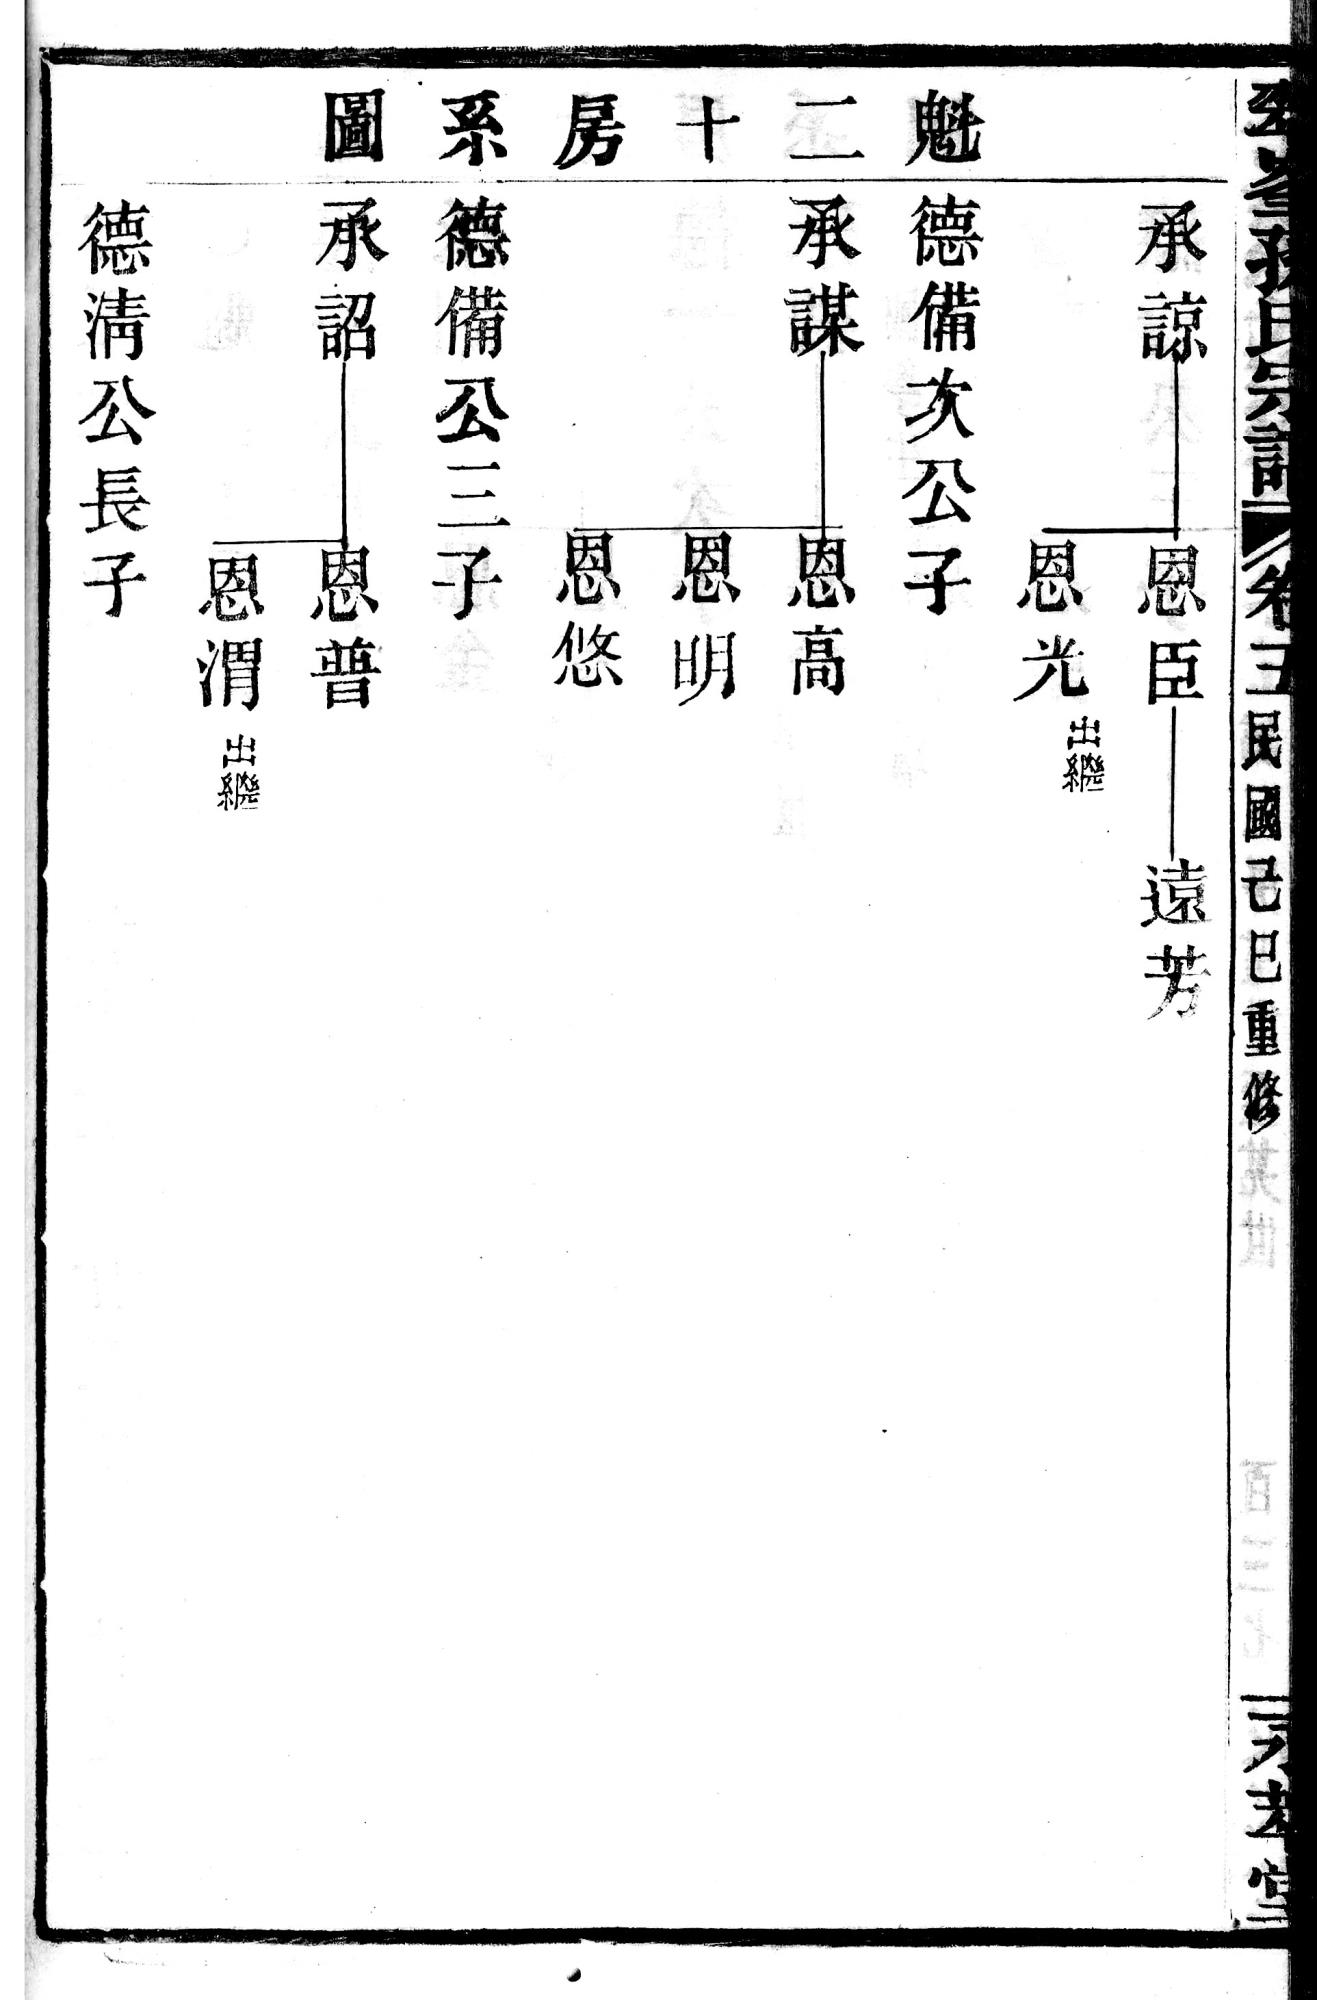 孫氏宗譜 卷三 民國己巳重修
魁二十房系圖
承諒
恩臣
遠芳
恩光 出繼
德備次公子
承謀
恩高
恩明
恩悠
德備公三子
承詔
恩普
恩渭 出繼
德淸公長子